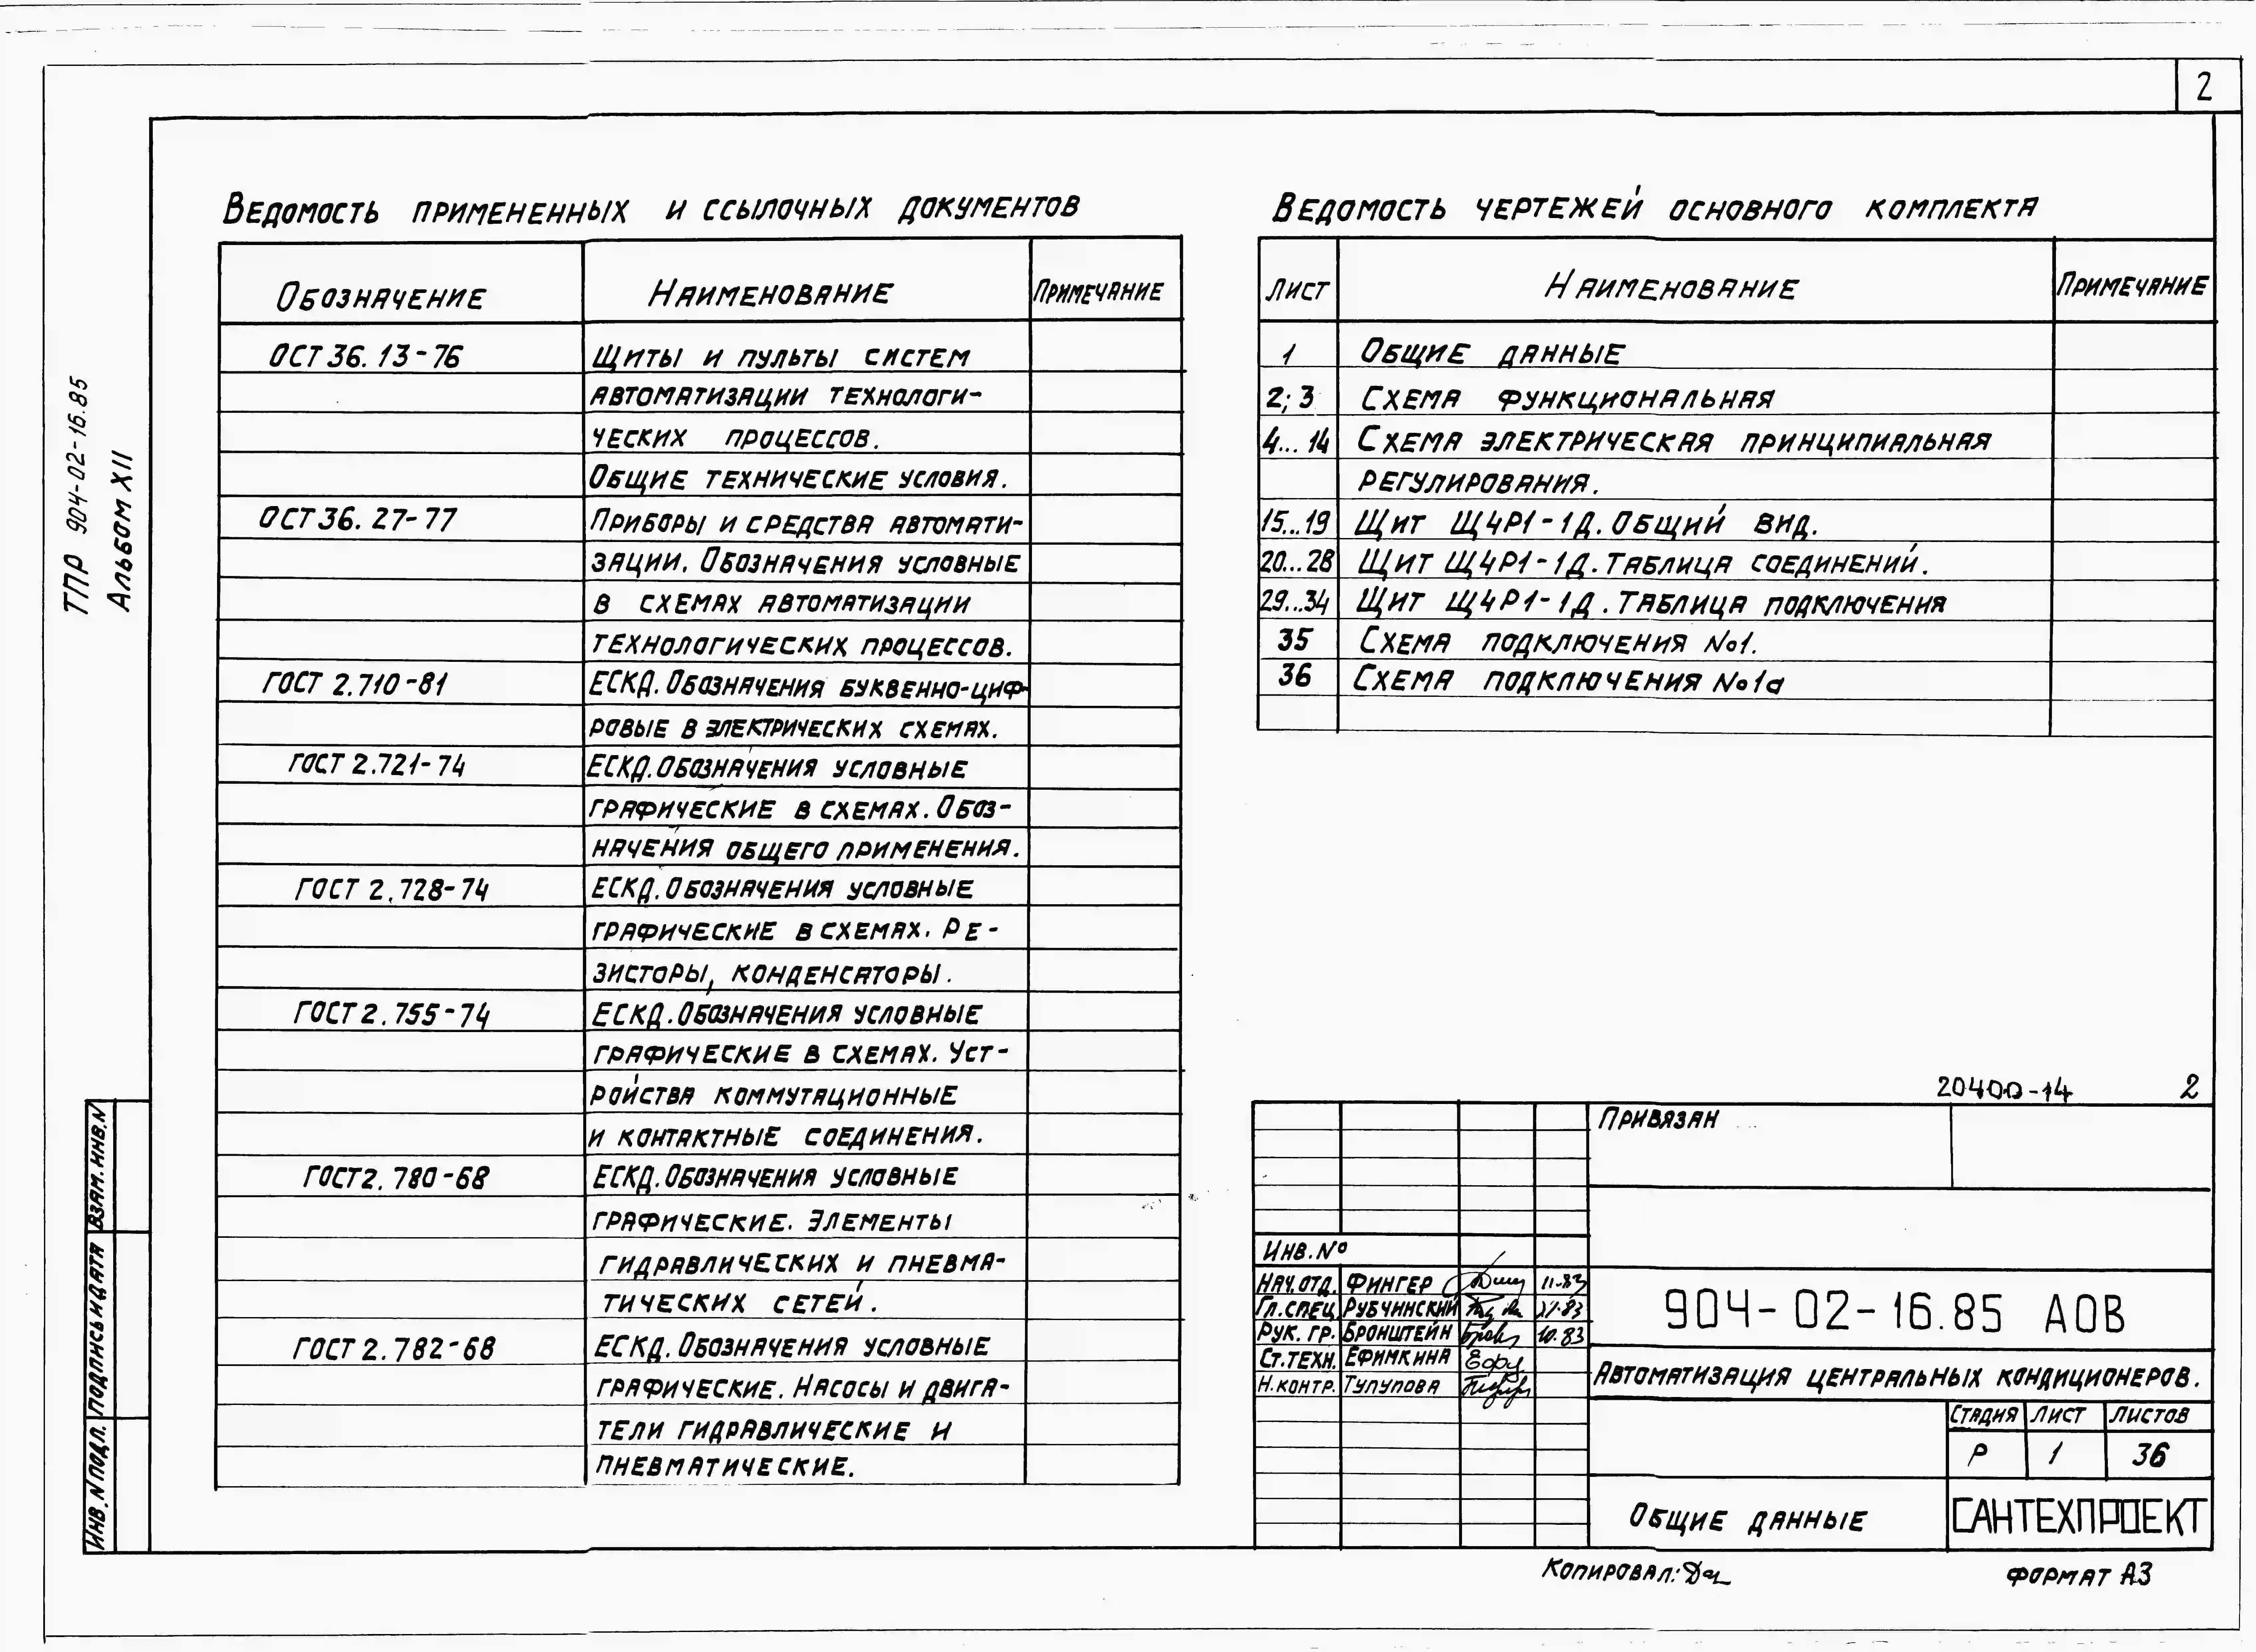 2
ТПР 904-02-16.85
Альбом XII
Ведомость примененных и ссылочных документов
Обозначение Наименование Примечание
ОСТ 36.13-76 Щиты и пульты систем
автоматизации технологи-
ческих процессов.
Общие технические условия.
ОСТ 36.27-77 Приборы и средства автомати-
зации. Обозначения условные
в схемах автоматизации
технологических процессов.
ГОСТ 2.710-81 ЕСКД. Обозначения буквенно-циф-
ровые в электрических схемах.
ГОСТ 2.721-74 ЕСКД. Обозначения условные
графические в схемах. Обоз-
начения общего применения.
ГОСТ 2.728-74 ЕСКД. Обозначения условные
графические в схемах. Ре-
зисторы, конденсаторы.
ГОСТ 2.755-74 ЕСКД. Обозначения условные
графические в схемах. Уст-
ройства коммутационные
и контактные соединения.
ГОСТ 2.780-68 ЕСКД. Обозначения условные
графические. Элементы
гидравлических и пневма-
тических сетей.
ГОСТ 2.782-68 ЕСКД. Обозначения условные
графические. Насосы и двига-
тели гидравлические и
пневматические.
Ведомость чертежей основного комплекта
Лист Наименование Примечание
1 Общие данные
2; 3 Схема функциональная
4...14 Схема электрическая принципиальная
регулирования.
15...19 Щит Щ4Р1-1Д. Общий вид.
20...28 Щит Щ4Р1-1Д. Таблица соединений.
29...34 Щит Щ4Р1-1Д. Таблица подключения
35 Схема подключения №1.
36 Схема подключения №1а
20400-14 2
Привязан
Инв.№
Нач.отд. Фингер 11-83
Гл.спец. Рубчинский XI-83
Рук. гр. Бронштейн 10.83
Ст.техн. Ефимкина
Н.контр. Тулупова
904-02-16.85 АОВ
Автоматизация центральных кондиционеров.
Стадия Лист Листов
Р 1 36
Общие данные
САНТЕХПРОЕКТ
Копировал:
Формат А3
Взам. инв. N
Подпись и дата
Инв. N подл.